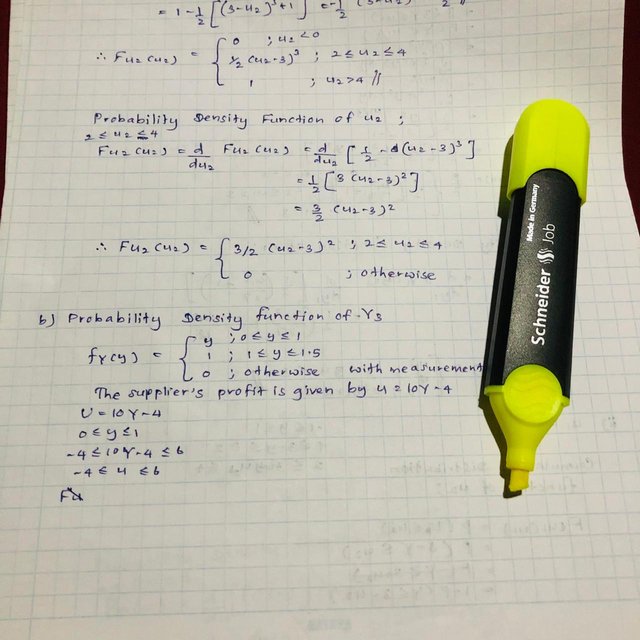 = 1 - 1/2 [(3-u2)^3 + 1]
∴ Fu2(u2) = { 0 ; u2 < 0
1/2 (u2-3)^3 ; 2 ≤ u2 ≤ 4
1 ; u2 > 4 //
Probability Density Function of u2 ;
2 ≤ u2 ≤ 4
Fu2(u2) = d/du2 Fu2(u2) = d/du2 [1/2 - (u2-3)^3]
= 1/2 [3(u2-3)^2]
= 3/2 (u2-3)^2
∴ Fu2(u2) = { 3/2 (u2-3)^2 ; 2 ≤ u2 ≤ 4
0 ; otherwise
b) Probability Density function of Y;
fY(y) = { y ; 0 ≤ y ≤ 1
1 ; 1 ≤ y ≤ 1.5
0 ; otherwise with measurement
The supplier's profit is given by u = 10Y-4
U = 10Y-4
0 ≤ y ≤ 1
-4 ≤ 10Y-4 ≤ 6
-4 ≤ u ≤ 6
Fu
Schneider Job
Made in Germany